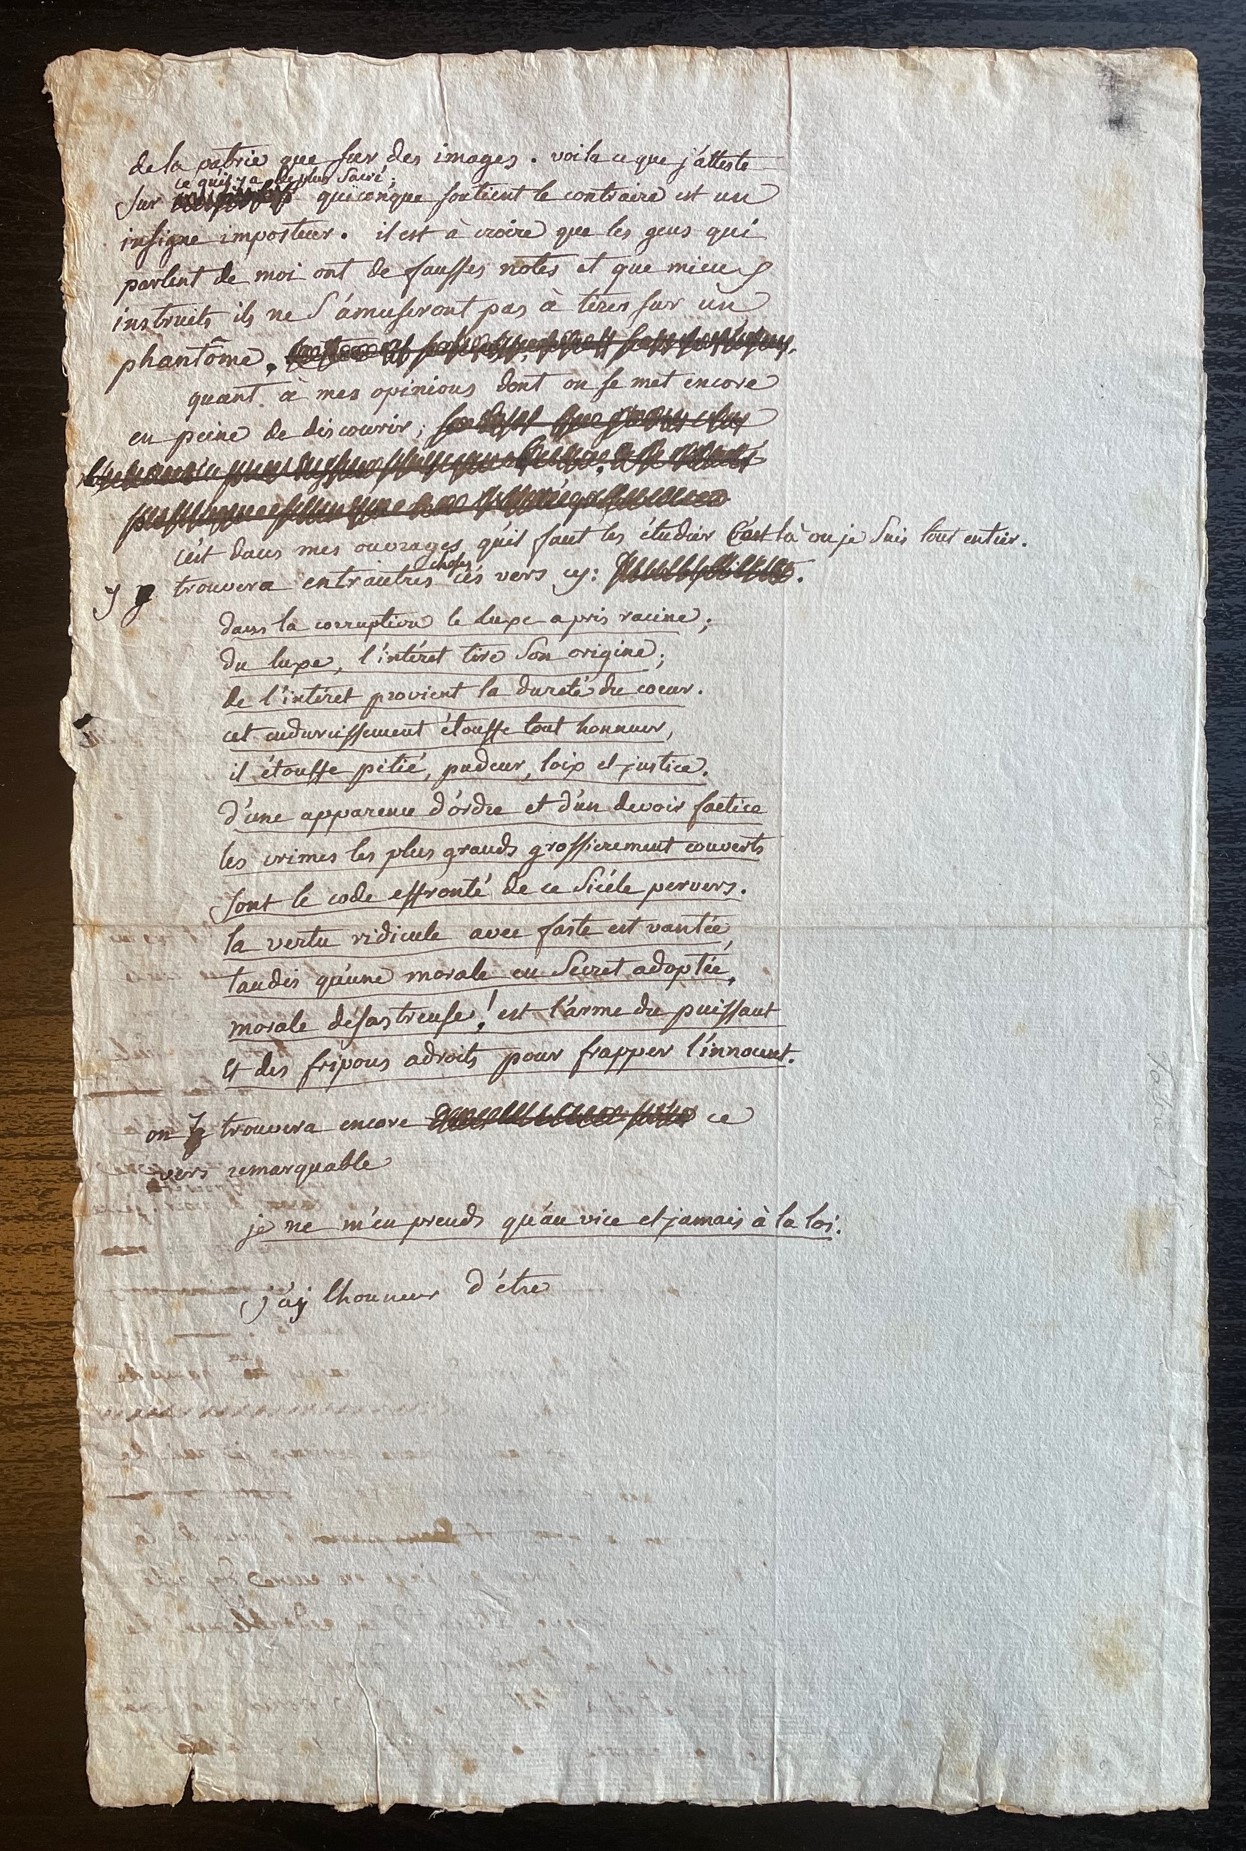 de la patrie que sur des images. voila ce que j'atteste
ce qu'il y a de plus sacré;
sur quiconque soutient le contraire est un
insigne imposteur. il est à croire que les gens qui
parlent de moi ont de fausses notes et que mieux
instruits ils ne s'amuseront pas à tirer sur un
phantôme.
quant à mes opinions dont on se met encore
en peine de discourir;
c'est dans mes ouvrages qu'il faut les étudier c'est là ou je suis tout entier.
choses
y trouvera entrautres ces vers cy:
dans la corruption le luxe a pris racine;
du luxe, l'intéret tire son origine;
de l'intéret provient la dureté du coeur.
cet endurcissement étouffe tout honneur,
il étouffe pitié, pudeur, loix et justice.
d'une apparence d'ordre et d'un devoir factice
les crimes les plus grands grossierement couverts
sont le code effronté de ce siécle pervers.
la vertu ridicule avec faste est vantée
tandis qu'une morale en secret adoptée,
morale desastreuse! est l'arme du puissant
et des fripons adroits pour frapper l'innocent.
on y trouvera encore ce
vers remarquable
je ne m'en prends qu'au vice et jamais à la loi.
j'ay lhonneur d'étre